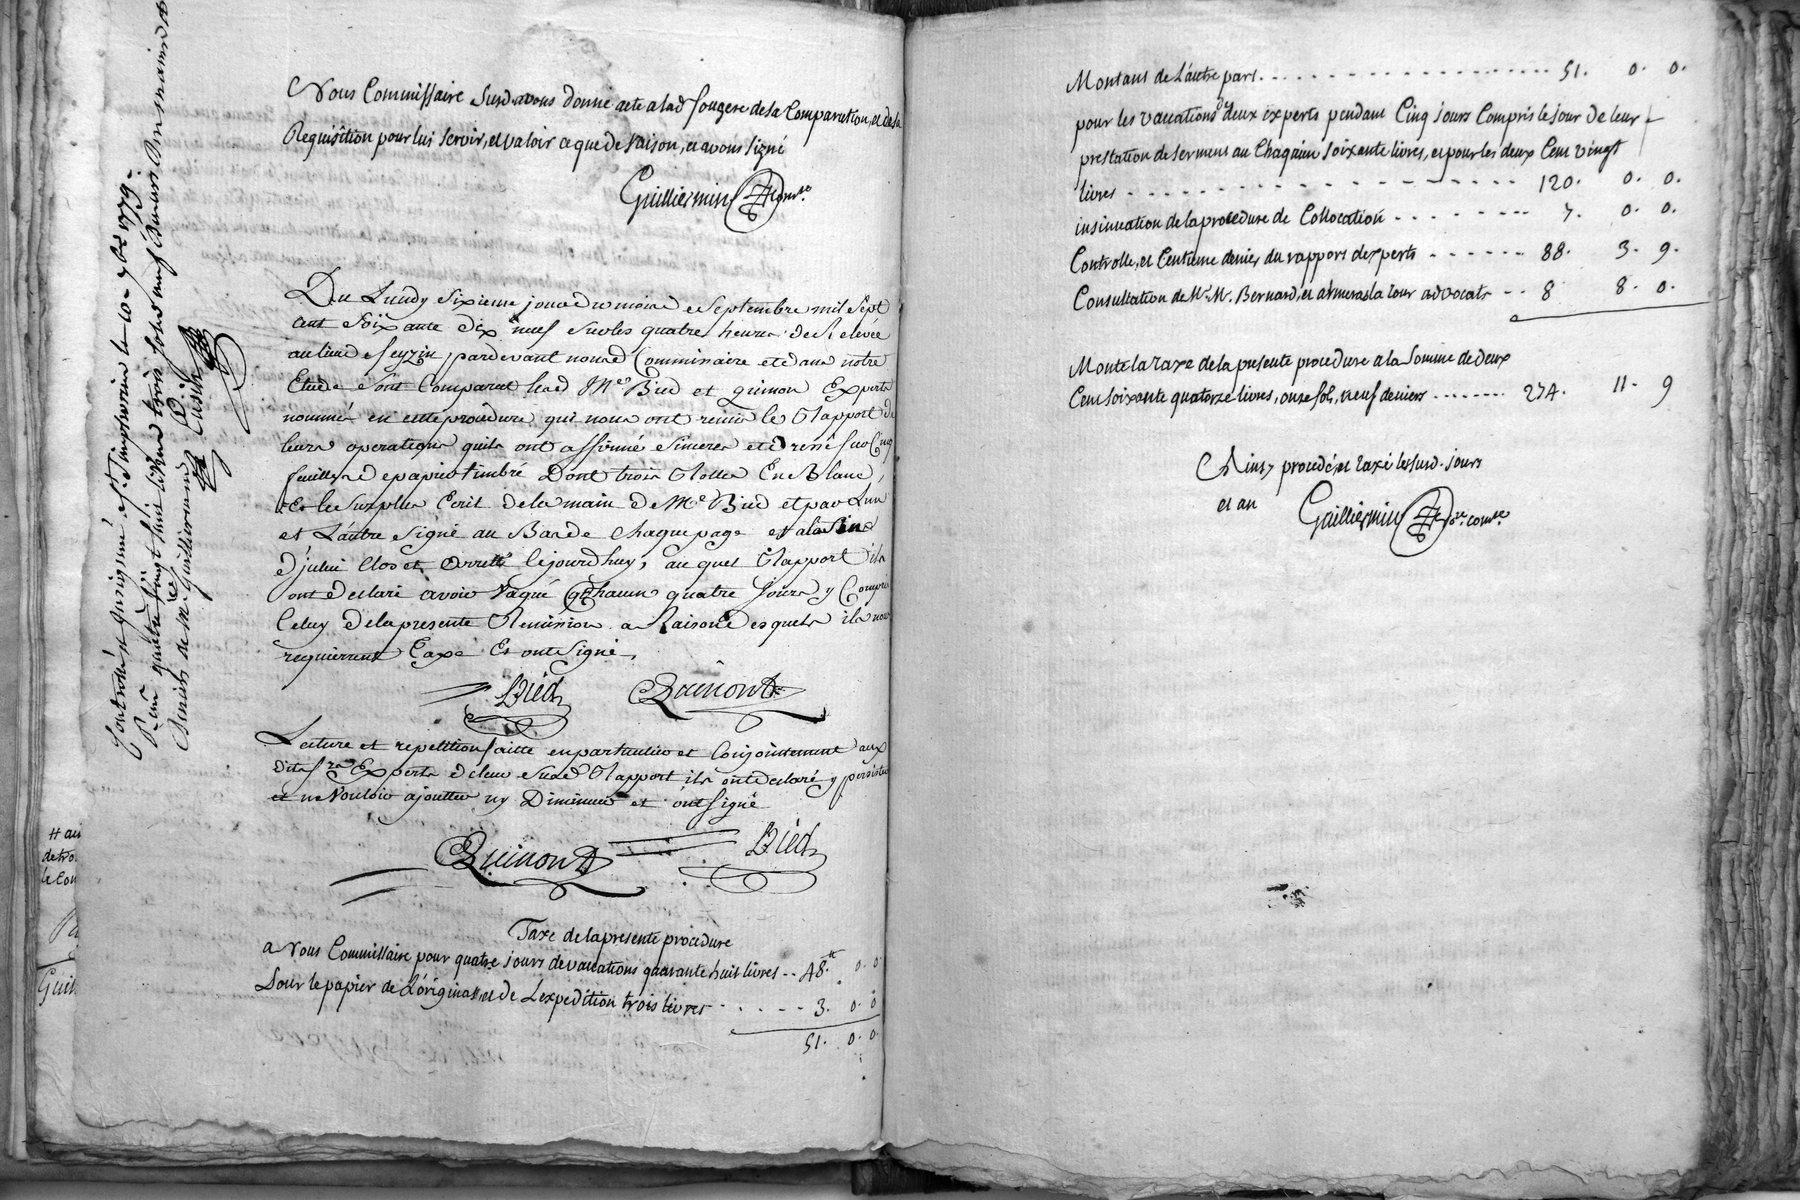 Nous Commissaire Susd avons donné acte a lad fougere de sa Comparution, et de sa
Requisition pour lui servir, et valoir ce que de raison, et avons signé
Guilliermin Com.re
Du Lundy sixieme jour du mois de Septembre mil sept
cent soixante dix neuf sur les quatre heures de Relevée
au lieu de seyzin, pardevant nousd Commissaire et dans notre
Etude sont Comparus lesd M.es Bied et guimon Experts
nommés en cette procedure qui nous ont remis le Rapport de
leurs operations quils ont affirmé sincere et dressé sur Cinq
feuilles de papier timbré Dont trois Rolles En Blanc
Et le surplus Ecrit de la main de M.e Bied et par Lun
et Lautre signé au Bas de Chaque page et a la fin
d'jcelui Clos et arretté cejourdhuy, au quel Rapport ils
ont declaré avoir Vaqué Chacun quatre Jours y Compris
Celuy de la presente Remission a Raison desquels ils nous
requierrent Taxe Et ont signé,
Bied Guimond
Lecture et repetition faitte en particulier et Conjointement aux
dits srs Experts de leur susd Rapport ils ont declaré y persister
et ne Vouloir ajoutter ny Diminuer et ont signé
Guimond Bied
Taxe de la presente procedure
a Nous Commissaire pour quatre jours de vacations quarante huit livres -- 48.tt 0. 0
Pour le papier de L'original, et de L'expedition trois livres - - - - - 3. 0. 0
51. 0. 0.
Controlé et insinué a St. Simphorien le 10 7bre 1779.
# au
de tro
le Con
Guil
Montant de L'autre part. - - - - - - - - - - 51. 0. 0.
pour les vacations des deux experts pendant Cinq jours Compris le jour de leur
prestation de serment au Chaqu'un soixante livres, et pour les deux Cent vingt
livres - - - - - - - - - - 120. 0. 0.
insinuation de la procedure de Collocation - - - - - - - 7. 0. 0.
Controlle, et Centieme denier du rapport d'experts - - - - - - 88. 3. 9.
Consultation de Mrs. Bernard, et avocats -- 8 8. 0.
Monte la taxe de la presente procedure a la Somme de deux
Cent soixante quatorze livres, onze sols, neuf deniers - - - - - - 274. 11. 9
Ainsy procedé, et taxé les susd. jours
et an Guilliermin Com.re